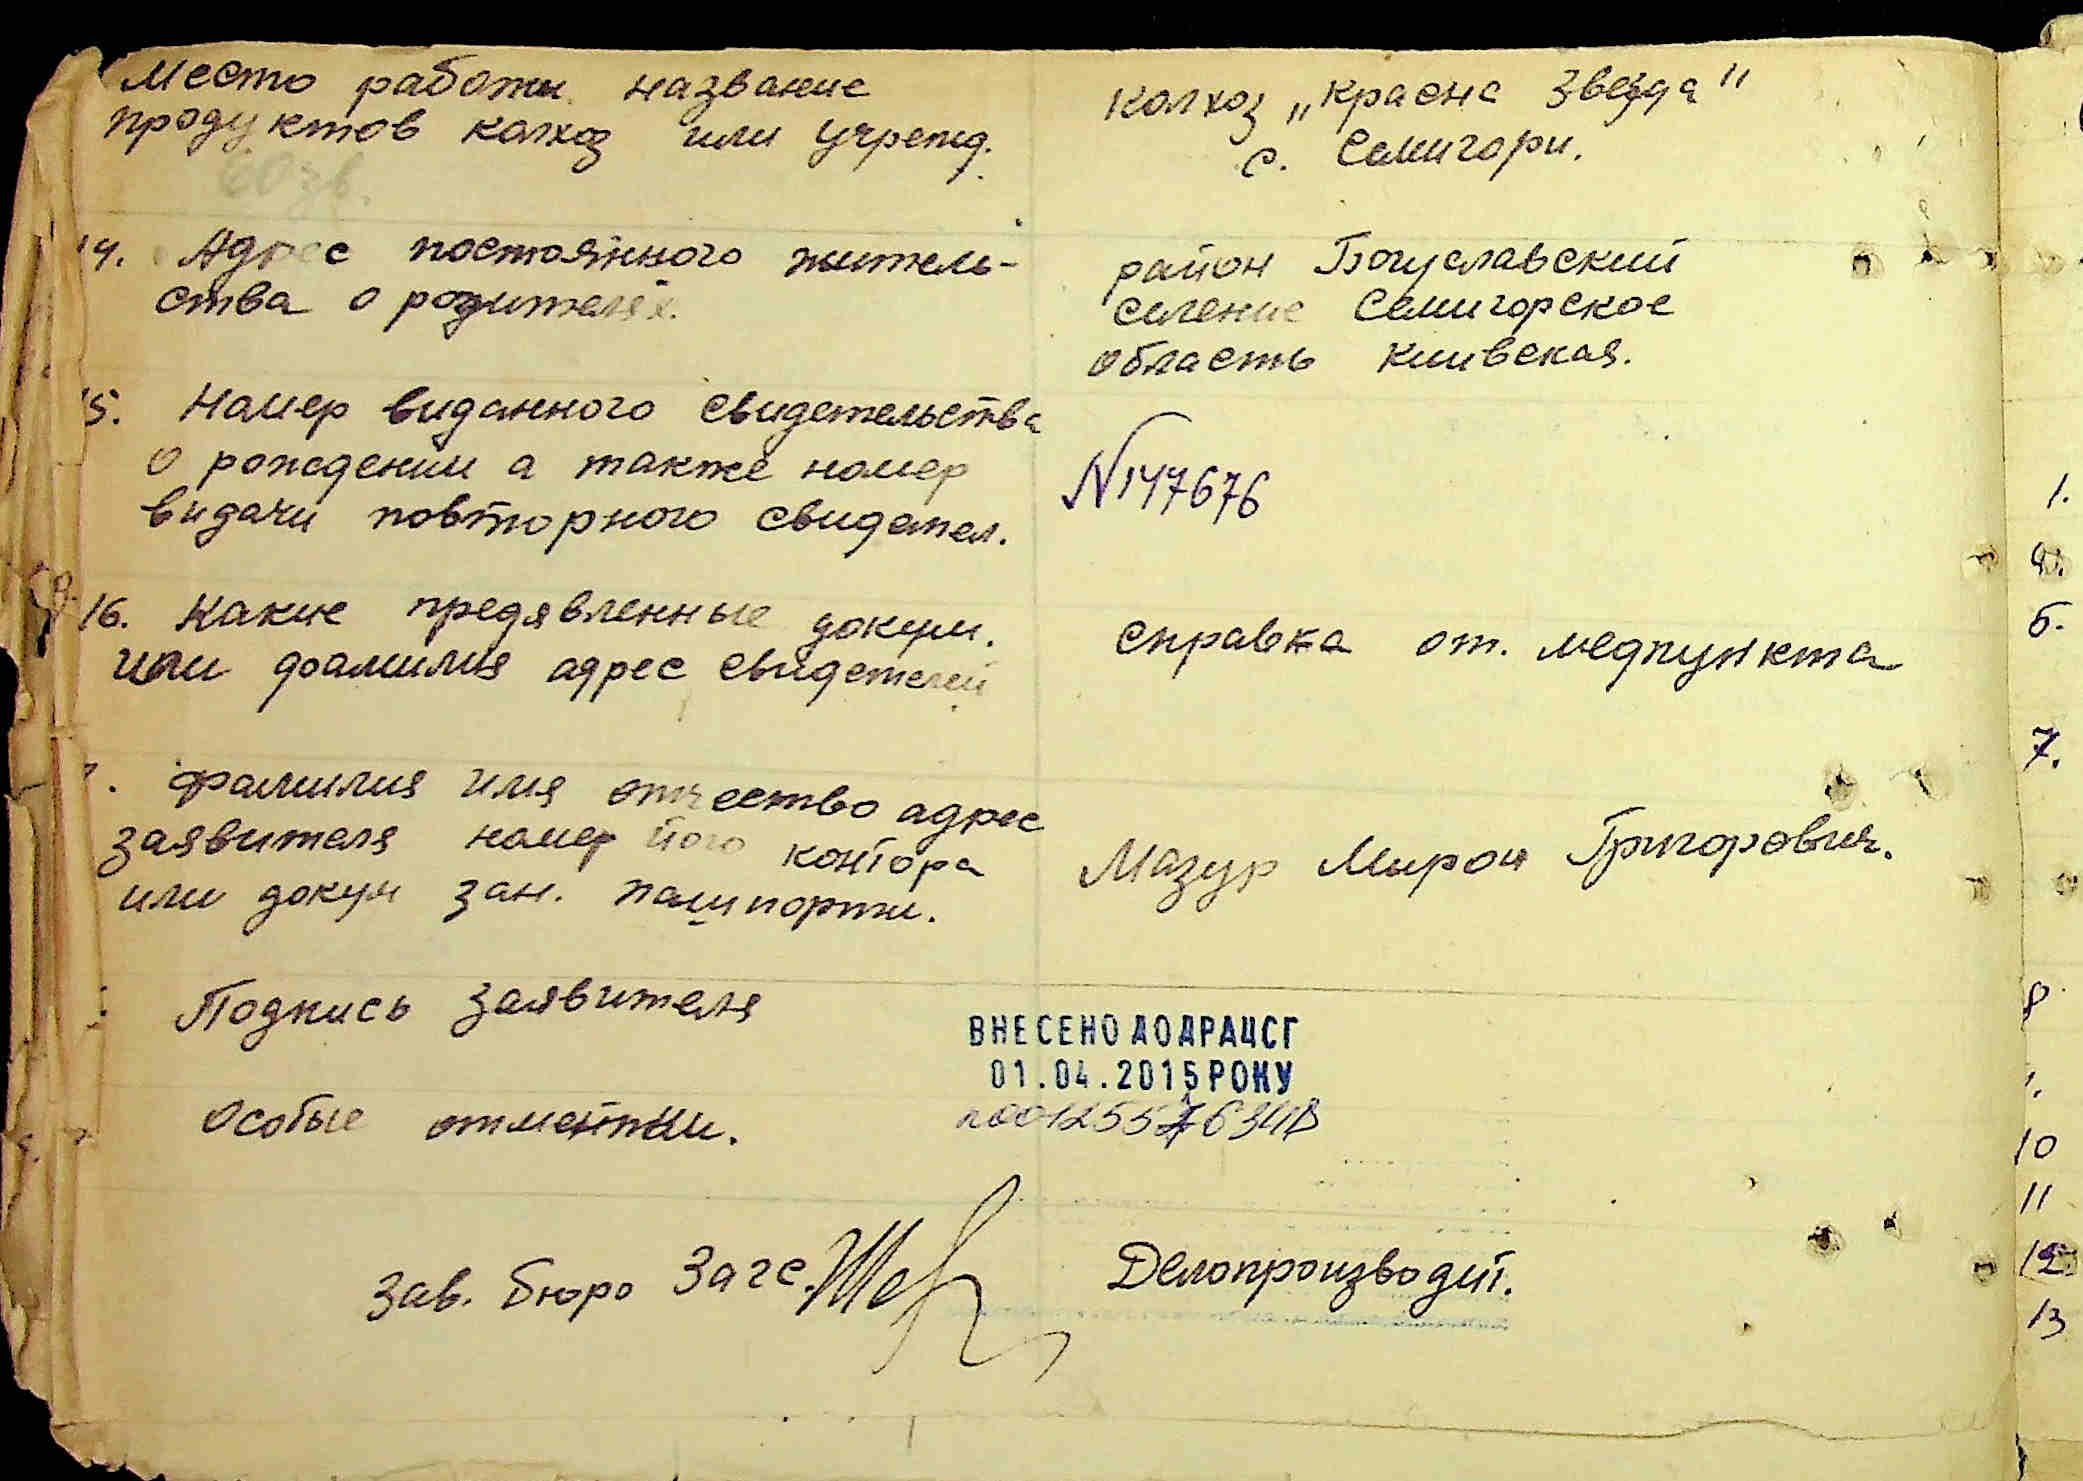 Место работы название
продуктов колхоз или учрежд.
колхоз „Красна Звезда"
с. Семигори.
14. Адрес постоянного житель-
ства о родителях.
район Богуславский
селение Семигорское
область Киивская.
15. Номер виданного свидетельства
о рождении а также номер
видачи повторного свидетел.
N147676
16. Какие предявленные докум.
или фамилия адрес свидетелей
справка от. медпункта
. Фамилия имя отчество адрес
заявителя номер його контора
или докум зан. пашпорти.
Мазур Мирон Григорович.
Подпись заявителя
ВНЕСЕНО ДО ДРАЦСГ
01.04.2015 РОКУ
Особые отметки.
Зав. Бюро Загс.
Делопроизводит.
1.
6.
7.
8
10
11
12
13